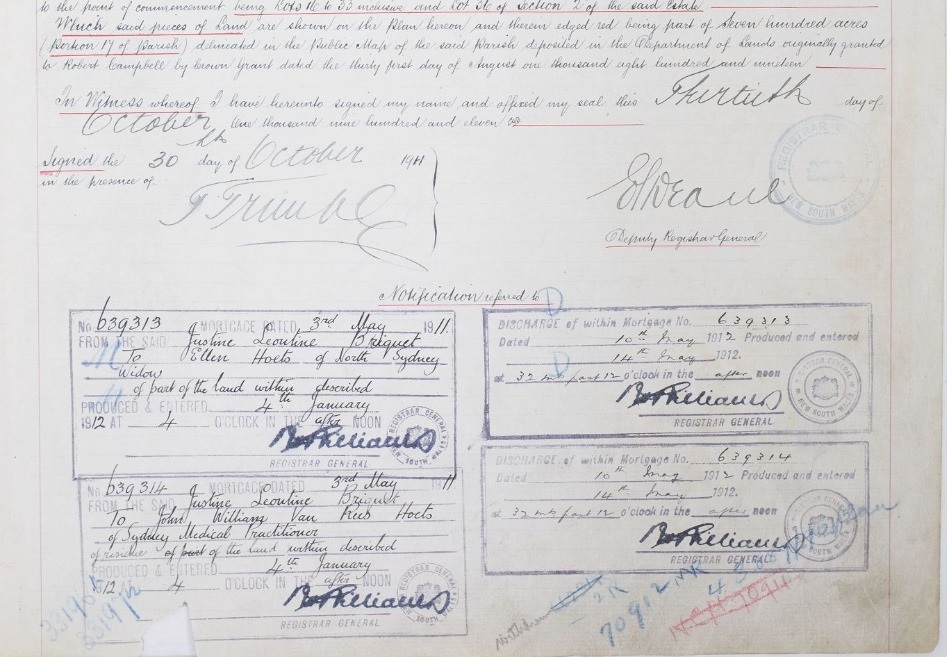 to the point of commencement being Lots 16 to 33 inclusive and Lot 36 of Section 2 of the said Estate
Which said pieces of Land are shown on the Plan hereon and therein edged red being part of Seven hundred acres
(Portion 17 of Parish) delineated in the Public Map of the said Parish deposited in the Department of Lands originally granted
to Robert Campbell by Crown Grant dated the thirty first day of August one thousand eight hundred and nineteen
In Witness whereof I have hereunto signed my name and affixed my seal this Thirtieth day of
October one thousand nine hundred and eleven
Signed the 30th day of October 1911
in the presence of
Deputy Registrar General
REGISTRAR
NEW SOUTH WALES
Notification referred to
No 639313 MORTGAGE DATED 3rd May 1911
FROM THE SAID Justine Leontine Briquet
To Ellen Hoets of North Sydney
Widow
of part of the land within described
PRODUCED & ENTERED 4th January
1912 AT 4 O'CLOCK IN THE after NOON
REGISTRAR GENERAL
REGISTRAR GENERAL
NEW SOUTH WALES
No 639314 MORTGAGE DATED 3rd May 1911
FROM THE SAID Justine Leontine Briquet
To John William Van Rees Hoets
of Sydney Medical Practitioner
of residue of part of the land within described
PRODUCED & ENTERED 4th January
1912 4 O'CLOCK IN THE after NOON
REGISTRAR GENERAL
DISCHARGE of within Mortgage No. 639313
Dated 10th May 1912 Produced and entered
14th May 1912.
at 32 mts past 12 o'clock in the after noon
REGISTRAR GENERAL
NEW SOUTH WALES
DISCHARGE of within Mortgage No. 639314
Dated 10th May 1912 Produced and entered
14th May 1912.
at 32 mts past 12 o'clock in the after noon
REGISTRAR GENERAL
70912